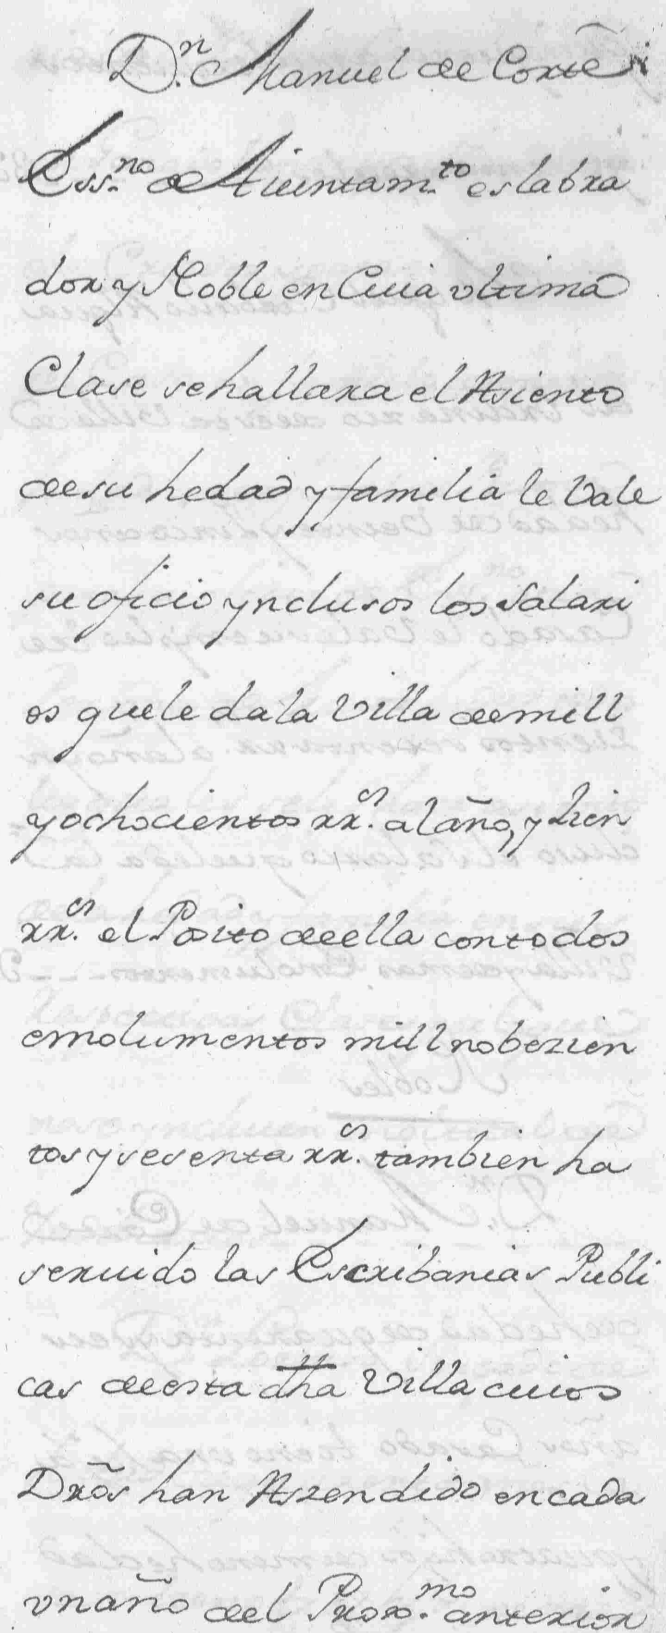 Dn. Manuel de Cortes
Essno. de Aiuntamto. es labra
dor y Noble en Cuia vltima
Clase se hallara el Asiento
de su hedad y familia le Vale
su oficio ynclusos los Salari
os que le da la Villa de mill
y ochocientos rrs. al año, y zien
rrs. el Posito de ella con todos
emolumentos mill nobezien
tos y sesenta rrs. tambien ha
seruido las Escribanias Publi
cas de esta dha Villa cuios
Dros han Aszendido en cada
vn año del Proxmo. anterior